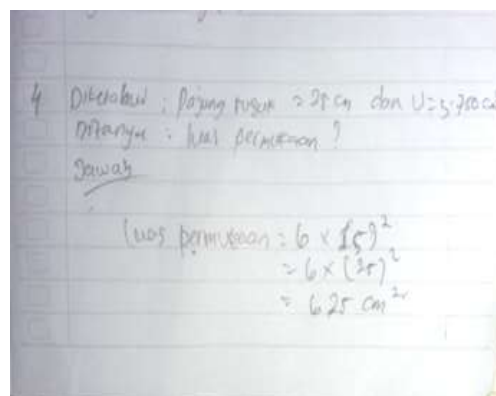 4 Diketahui : Pajang rusuk = 25 cm dan U = 3.750 c
Ditanya : luas permukaan ?
Jawab
luas permukaan = 6 × (s)²
= 6 × (25)²
= 625 cm²